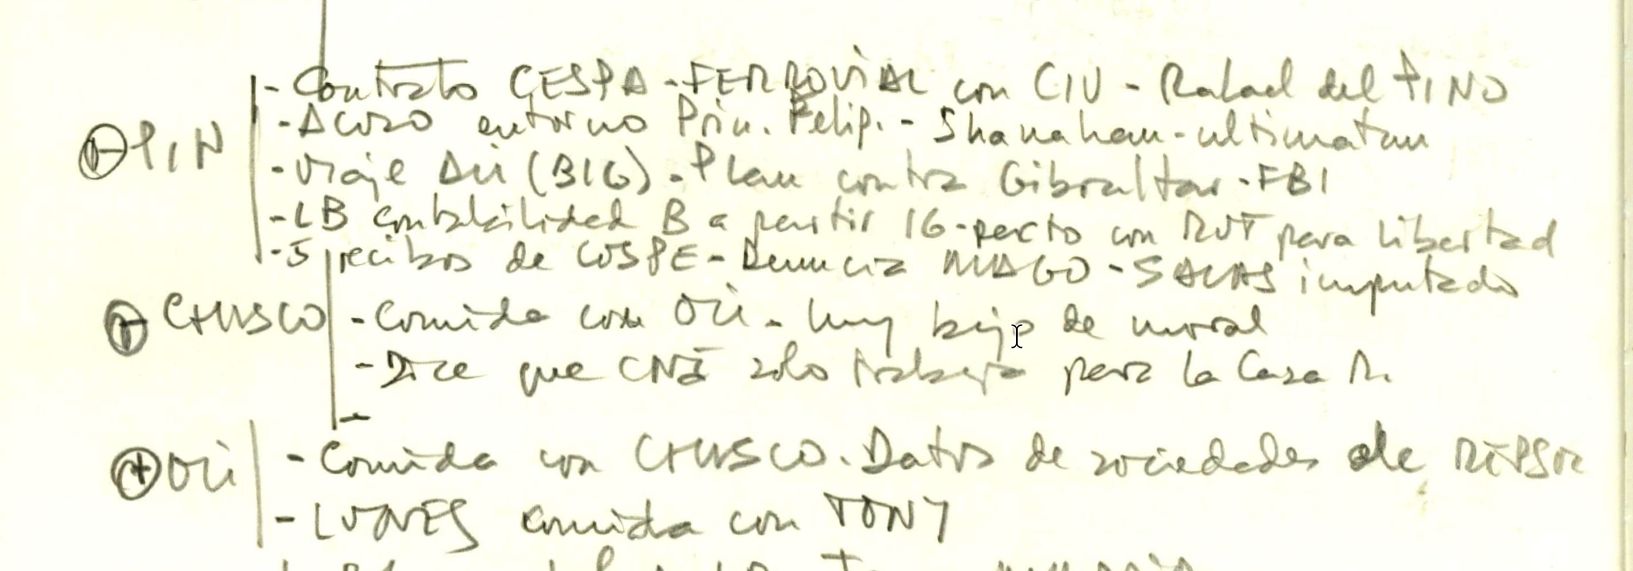 - Contrato CESPA-FERROVIAL con CIU - Rafael del PINO
- Acoso entorno Prin. Felip. - Shanahan - ultimatum
PIN
- Viaje (BIG). Plan contra Gibraltar - FBI
- LB contabilidad B a partir 16 - pacto con para libertad
- 5 recibos de COSPE - Denuncia MAGO - SALAS imputado
CHUSCO
- Comida con Oli - Muy bajo de moral
- Dice que CNI solo trabaja para la Casa R.
-
Oli
- Comida con CHUSCO. Datos de sociedades de
- LUNES comida con TONY